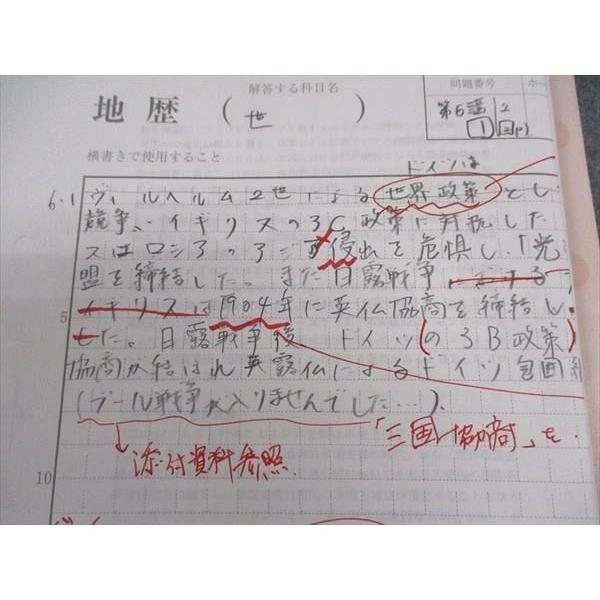 解答する科目名
地歴(世)
問題番号
第6講 2
1
横書きで使用すること
ドイツは
6.1 ヴィルヘルム2世による世界政策とし
競争、イギリスの3C政策に対抗した
スはロシアの 侵出を危惧し、「光
盟を締結した。また日露戦争
5
イギリスは1904年に英仏協商を締結し
した。日露戦争後、ドイツ(の3B政策)
協商が結ばれ英露仏によるドイツ包囲
(ブール戦争が入りませんでした…)。
「三国協商」を
→添付資料参照.
10